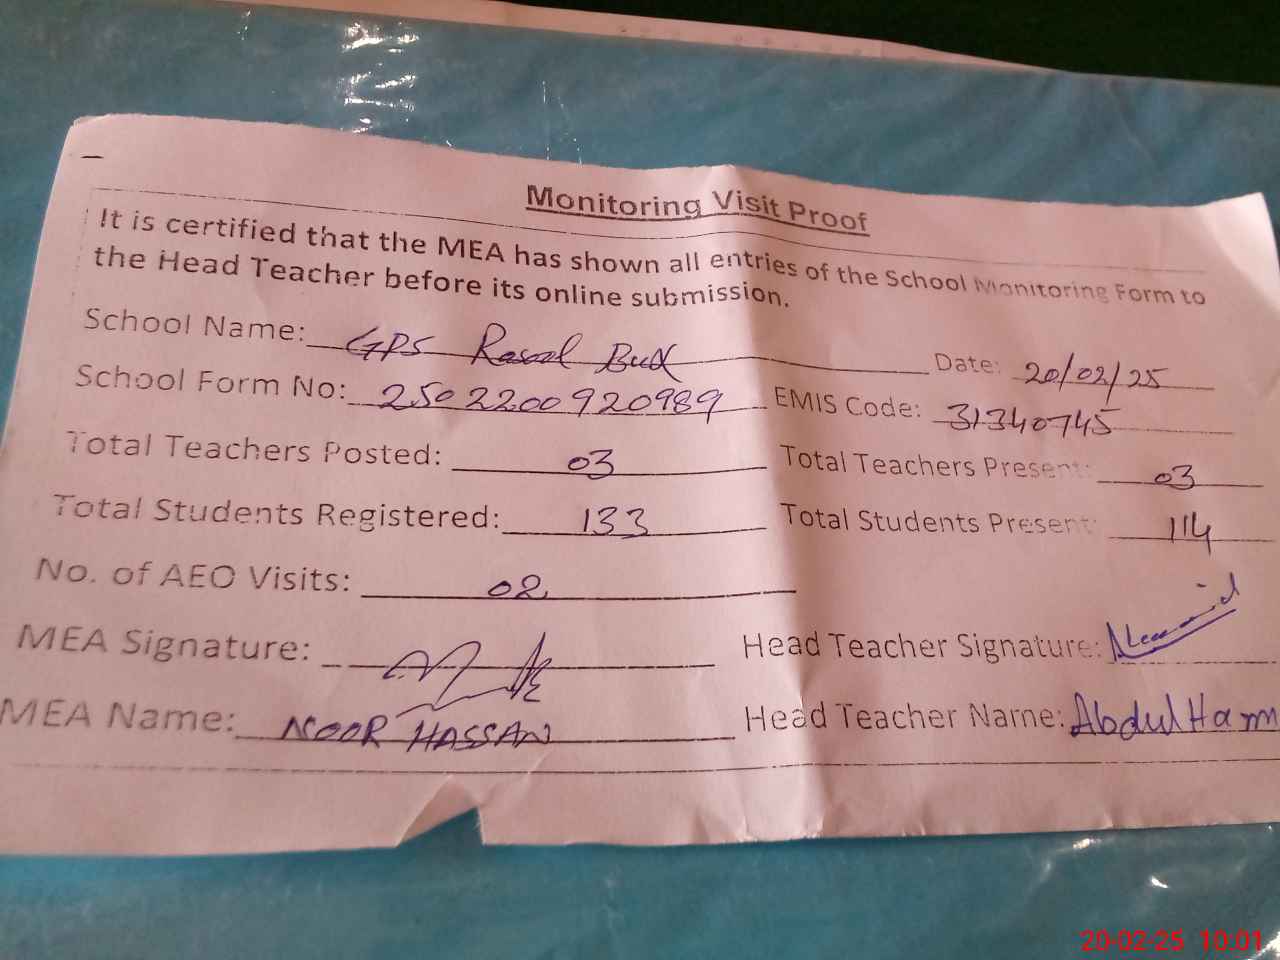 Monitoring Visit Proof
It is certified that the MEA has shown all entries of the School Monitoring Form to
the Head Teacher before its online submission.
School Name: GPS Rasool Bux Date: 20/02/25
School Form No: 2502200920989 EMIS Code: 31340745
Total Teachers Posted: 03 Total Teachers Present: 03
Total Students Registered: 133 Total Students Present: 114
No. of AEO Visits: 02
MEA Signature: Head Teacher Signature:
MEA Name: NOOR HASSAN Head Teacher Name: Abdul
20-02-25 10:01